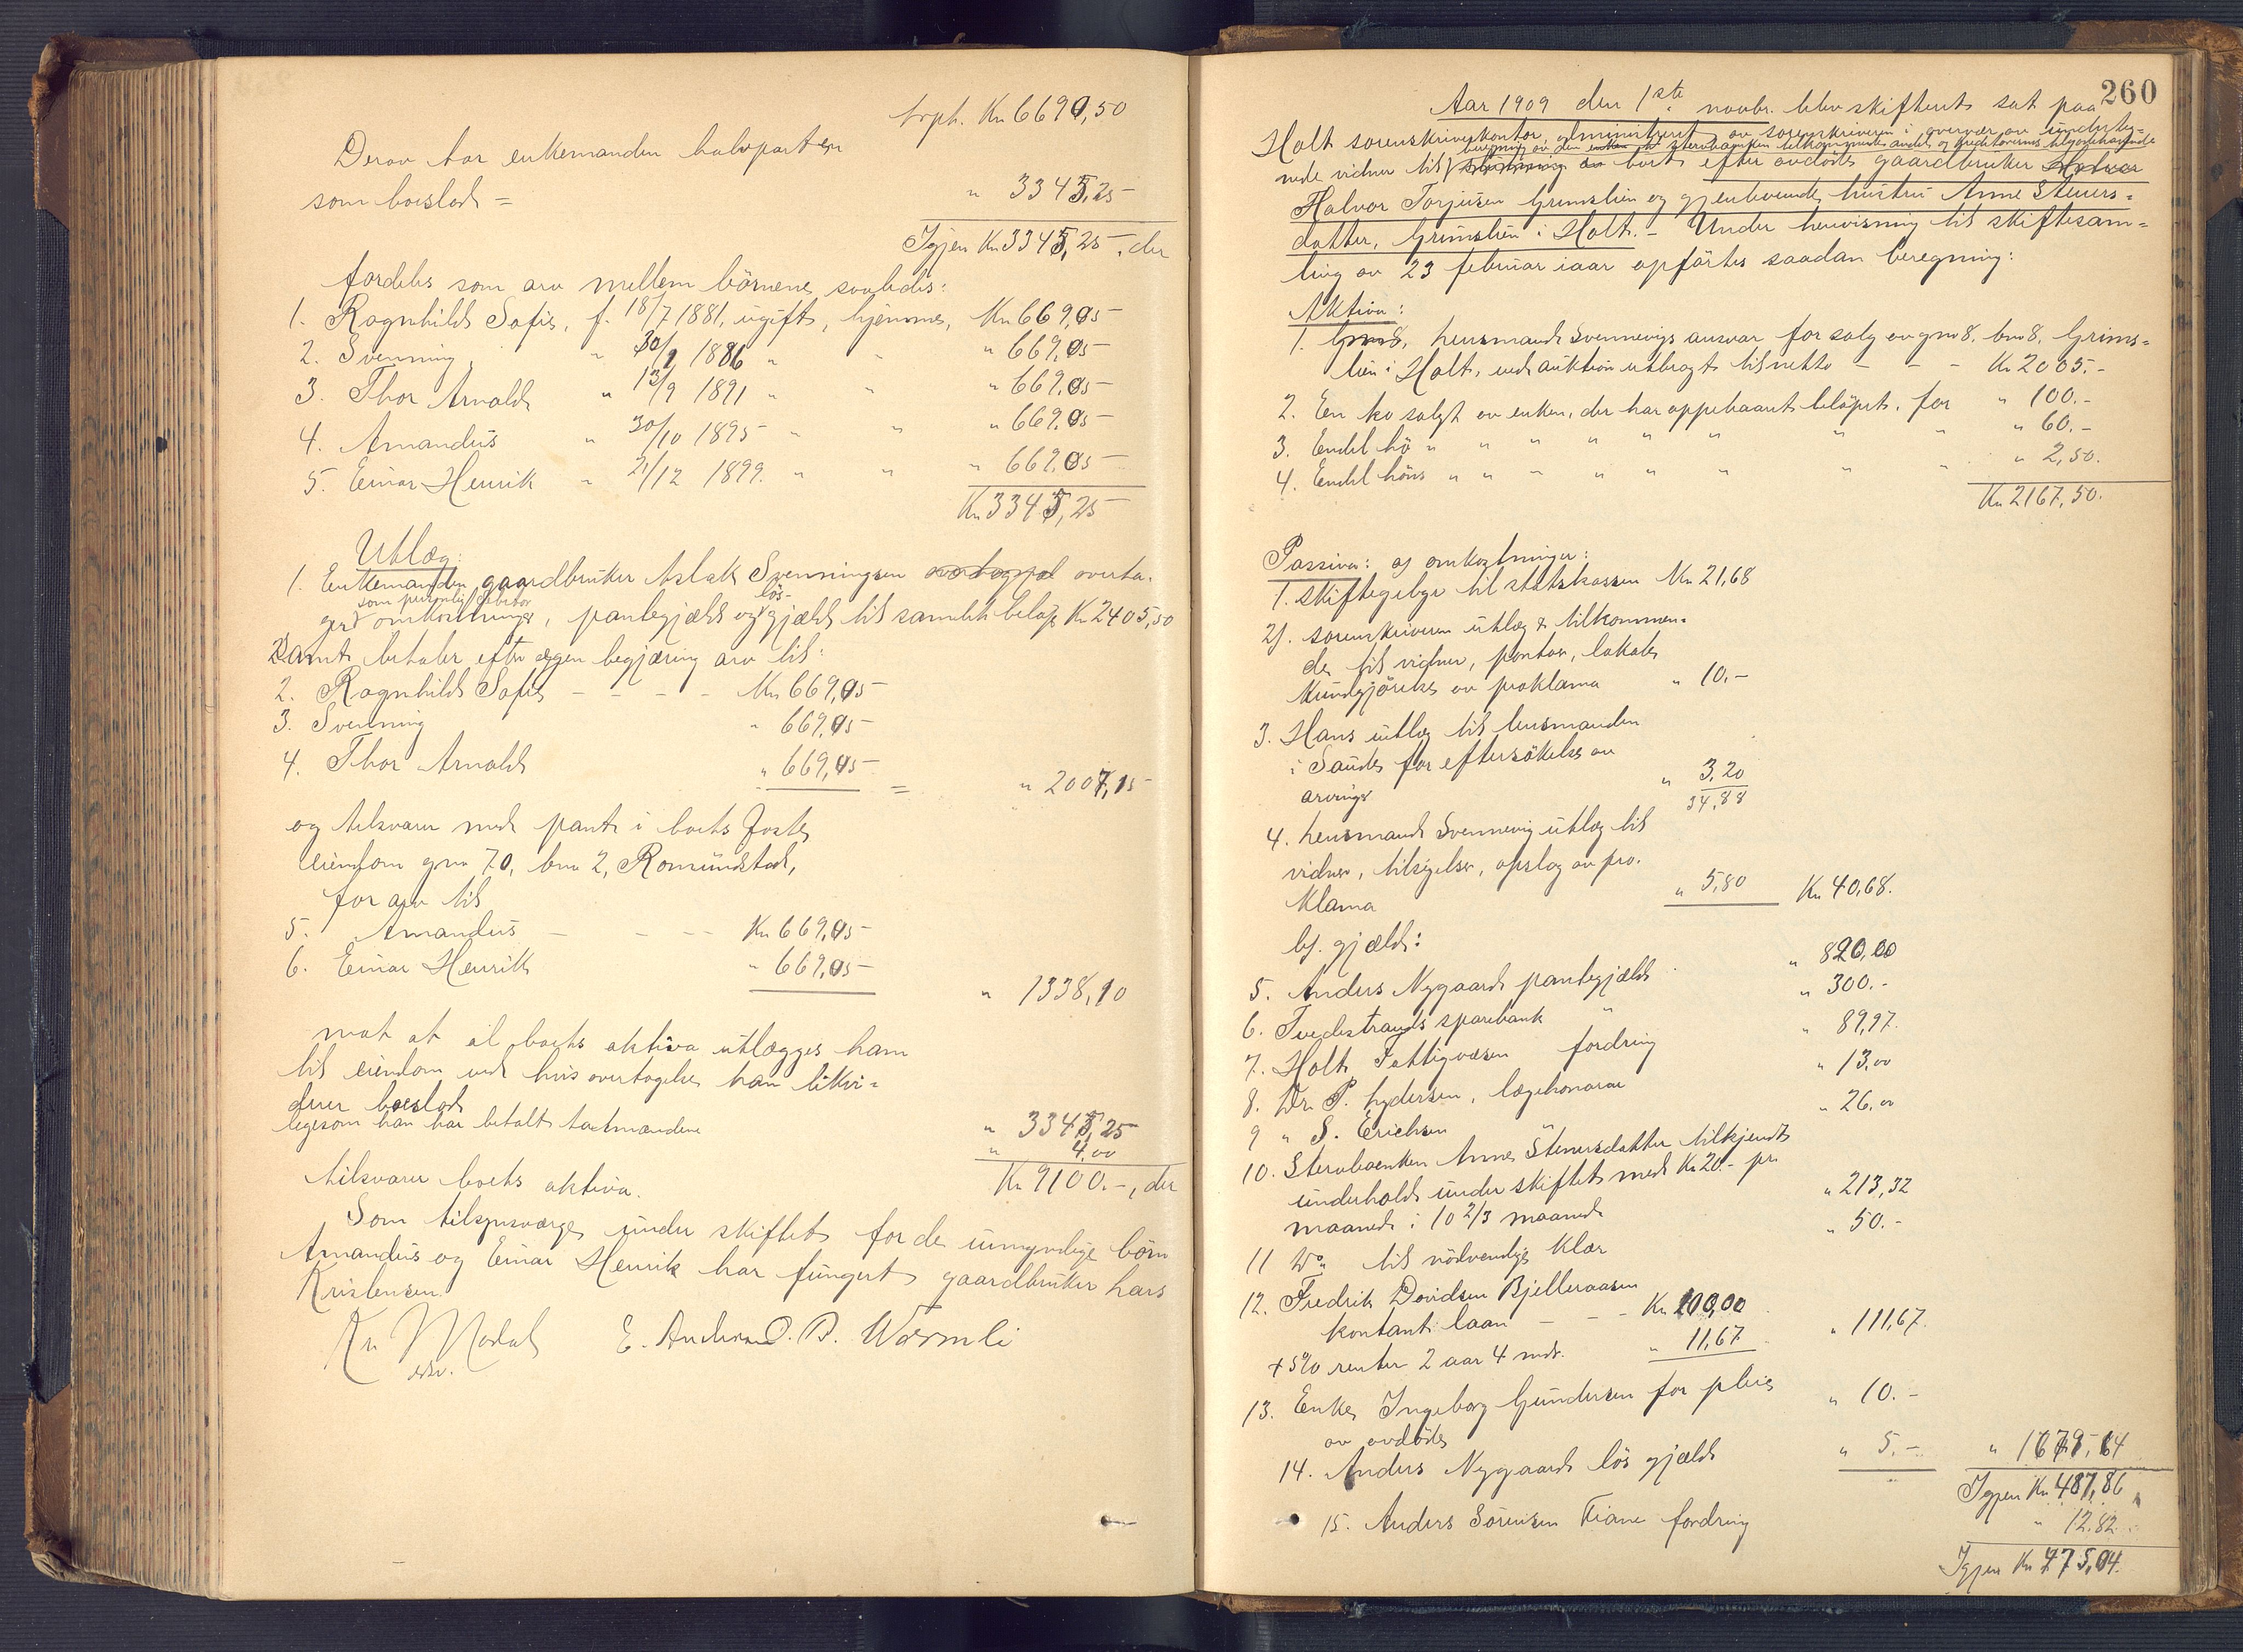 trph. Kr 6690,50
Derav tar enkemanden halvparten
som boeslod = " 3345,25
Igjen Kr 3345,25, der
fordeles som arv mellem börnene saaledes:
1. Ragnhild Sofie, f. 18/7 1881, ugift, hjemme, Kr 669,05
2. Svenning, " 30/9 1886 " " " 669,05
3. Thor Arnold " 13/9 1891 " " " 669,05
4. Amandus " 30/10 1895 " " " 669,05
5. Einar Henrik " 21/12 1899. " " " 669,05
Kr 3345,25
Utlæg:
1. Enkemanden, gaardbruker Aslak Svenningsen overta-
som personlig debitor lös-
ger omkostninger, pantegjæld og gjæld til samlet beløp Kr 2405,50
Samt betaler efter egen begjæring arv til:
2. Ragnhild Sofie - - - - Kr 669,05
3. Svenning " 669,05
4. Thor Arnold " 669,05 = " 2007,15
og tilsvarer med pant i boets faste
eiendom gno 70, bno 2, Romundstad,
for arv til
5. Amandus - - - - Kr 669,05
6. Einar Henrik " 669,05
" 1338,10
mot at al boets aktiva utlægges ham
til eiendom ved hvis overtagelse han likvi-
derer boeslod " 3345,25
likesom han har betalt takstmændene " 4,00
Kr 9100.-, der
tilsvarer boets aktiva.
Som tilsynsværge under skiftet for de umyndige börn
Amandus og Einar Henrik har fungert gaardbruker Lars
Kristensen.
Kr Modal E. Andersen O. B. Wormli
edsv.
260
Aar 1909 den 1ste novbr. blev skifteret sat paa
Holt sorenskriverkontor, administreret av sorenskriveren i overvær av underteg-
beregning av den enken til stervboenken tilkommende andel og kreditorernes tilgodehavende
nede vidner til slutning av boet efter avdöde gaardbruker Halvor
Halvor Torjusen Grimslien og gjenlevende hustru Anne Steners-
datter, Grimslien i Holt. - Under henvisning til skiftesam-
ling av 23 februar iaar opförtes saadan beregning:
Aktiva:
1. Gno 8, lensmand Svennevigs ansvar for salg av gno 8, bno 8, Grims-
lien i Holt, ved auktion utbragt til netto - - - Kr 2005.-
2. En ko solgt av enken, der har oppebaaret beløpet, for " 100.-
3. Endel hö " " " " " " " " " 60.-
4. Endel höns " " " " " " " " " 2,50.
Kr 2167,50.
Passiva: a) omkostninger:
1. Skiftegebyr til statskassen Kr 21,68
2). Sorenskriveren utlæg & tilkommen-
de til vidner, porto, lokale,
kundgjörelse av proklama " 10.-
3. Hans utlæg til lensmanden
i Saude for eftersökelse av
arvinger " 3,20
34,88
4. Lensmand Svennevig utlæg til
vidner, tilsigelser, opslag av pro-
klama " 5,80 Kr 40,68.
b). gjæld:
5. Anders Nygaard pantegjæld " 820,00
6. Tvedestrands sparebank " " 300.-
7. Holt Fattigvæsen fordring " 89,97.
8. Dr. P. Lydersen, lægehonorar " 13,00
9 " S. Erichsen " 26,00
10. Stervboenken Anne Stenersdatter tilkjendt
underhold under skiftet med Kr 20.- pr.
maaned i 10 2/3 maaned " 213,32
11 Do til nödvendige klær " 50.-
12. Fredrik Davidsen Bjelleraasen
kontant laan - - - Kr 100,00
+ 5% renter 2 aar 4 mdr. " 11,67 " 111,67.
13. Enke Ingeborg Gundersen for pleie
av avdöde " 10.-
14. Anders Nygaard lös gjæld " 5.- " 1679,64
Igjen Kr 487,86
15. Anders Sörensen Fiane fordring " 12,82
Igjen Kr 475,04.